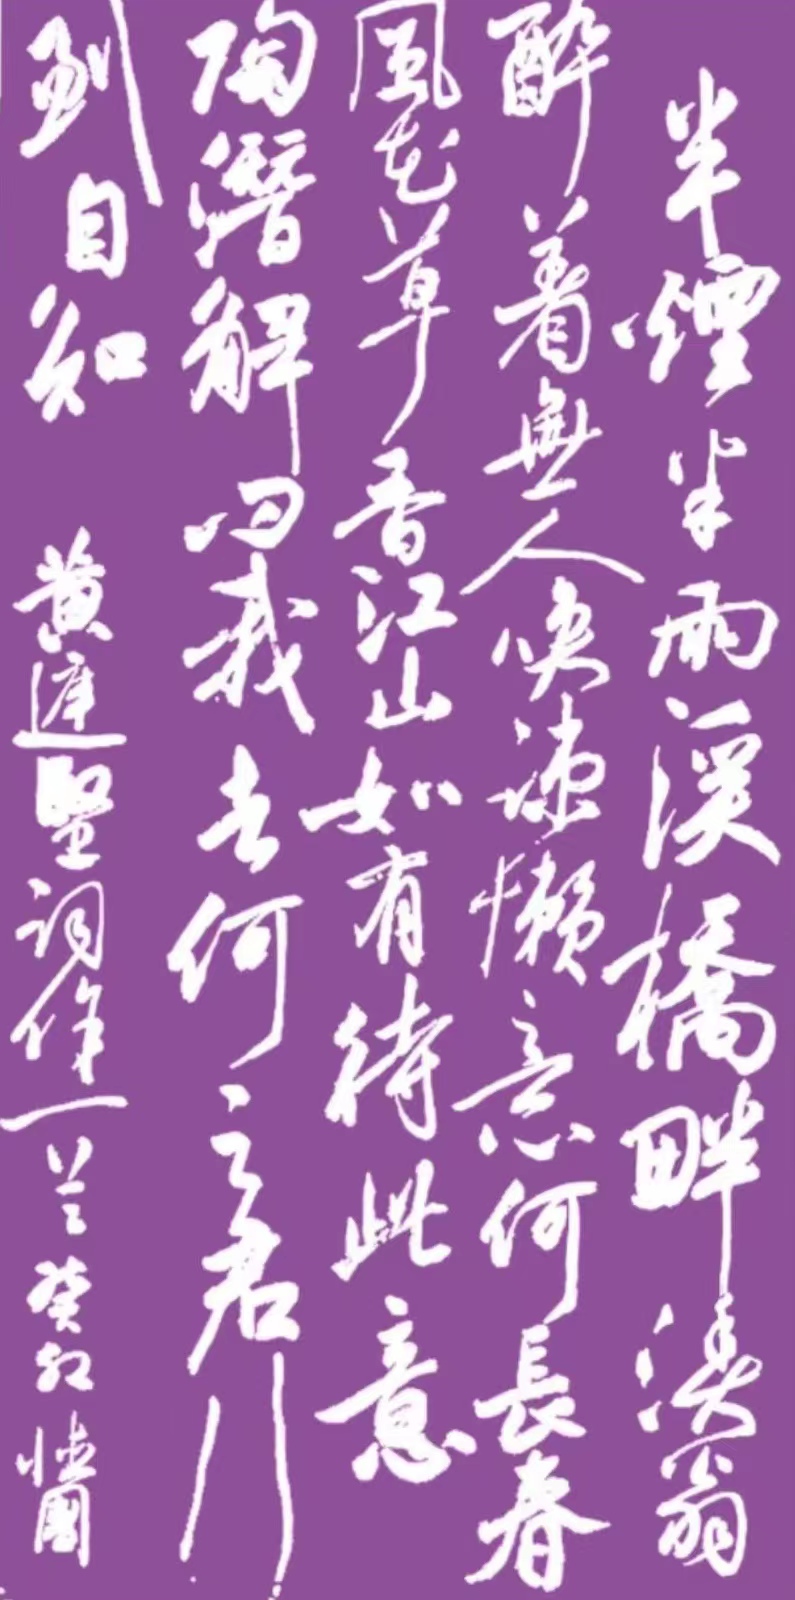 半煙半雨溪橋畔漁翁
醉着無人喚疎懶意何長春
風花草香江山如有待此意
陶潛解问我去何之君行
到自知 黄庭堅詞作一首癸卯國